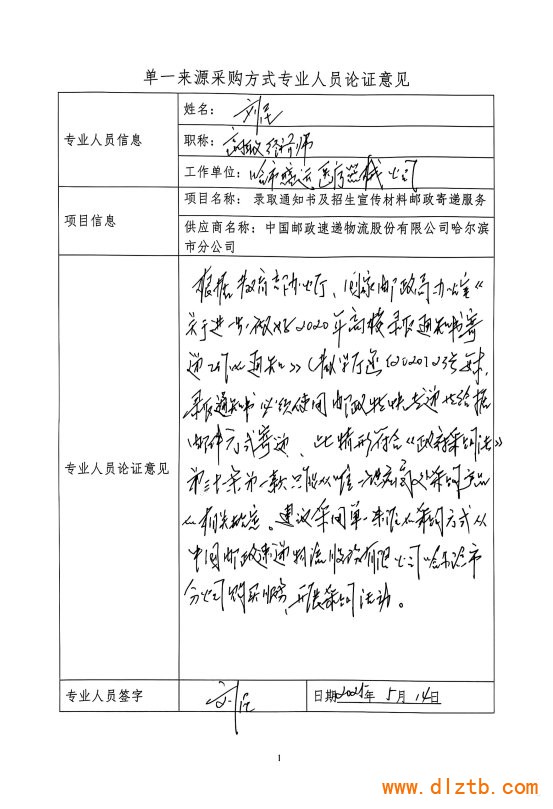 单一来源采购方式专业人员论证意见
专业人员信息
姓名：
职称：高级经济师
工作单位：哈市 医疗器械公司
项目信息
项目名称： 录取通知书及招生宣传材料邮政寄递服务
供应商名称：中国邮政速递物流股份有限公司哈尔滨
市分公司
专业人员论证意见
根据教育部办公厅、国家邮政局办公室《
关于进一步做好2020年高校录取通知书寄
递工作的通知》（教学厅函〔2020〕23号 要求，
录取通知书必须使用邮政特快专递 给据
邮件方式寄递，此情形符合《政府采购法》
第三十一条第一款只能从唯一供应商处采购产品
的相关规定。建议采用单一来源的采购方式从
中国邮政速递物流股份有限公司哈尔滨市
分公司购买服务，开展采购活动。
专业人员签字
日期 年 5 月 14 日
1
www.dlztb.com